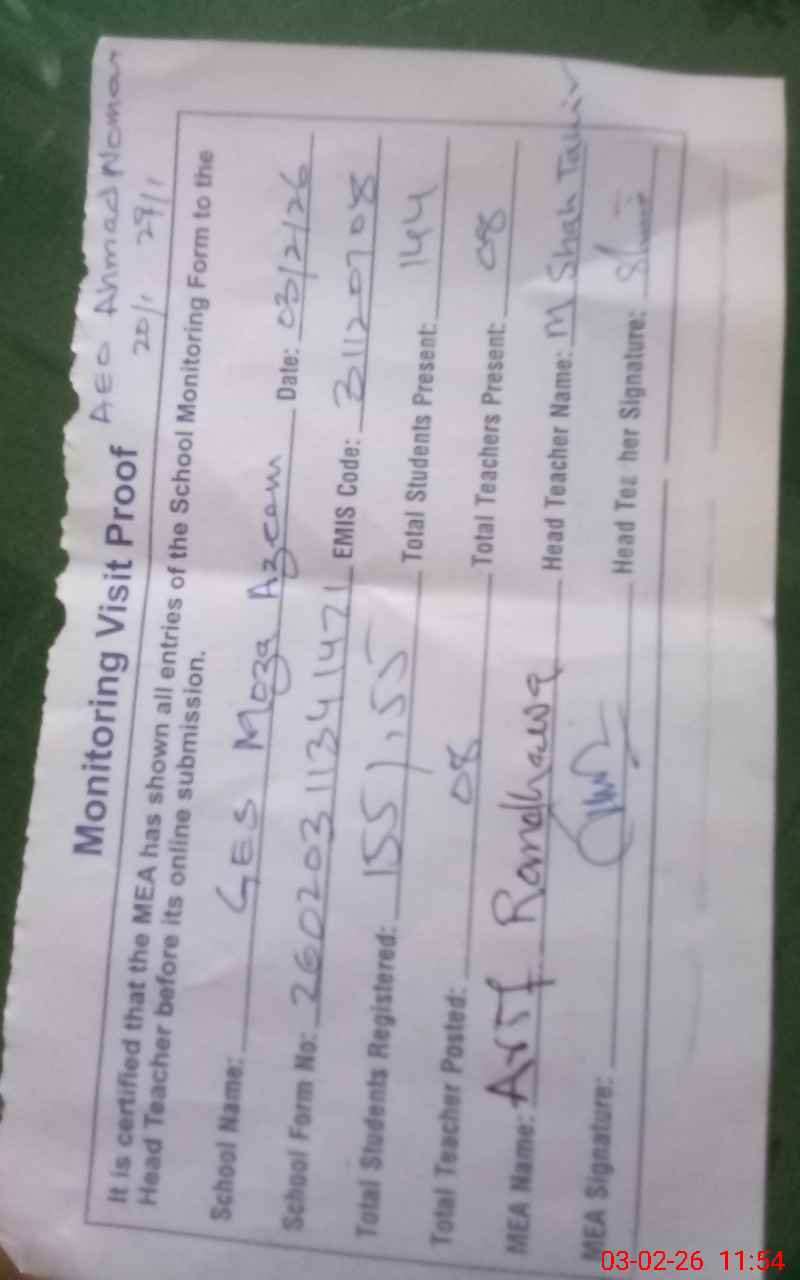 Monitoring Visit Proof AEO Ahmad Noman
20/1 29/1
It is certified that the MEA has shown all entries of the School Monitoring Form to the
Head Teacher before its online submission.
School Name: GES Moza Azeem Date: 03/2/26
School Form No: 26020311341471 EMIS Code: 31120708
Total Students Registered: 155/155 Total Students Present: 144
Total Teacher Posted: 08 Total Teachers Present: 08
MEA Name: Arif Randhawa Head Teacher Name: M Shah Tahir
MEA Signature: Head Teacher Signature:
03-02-26 11:54